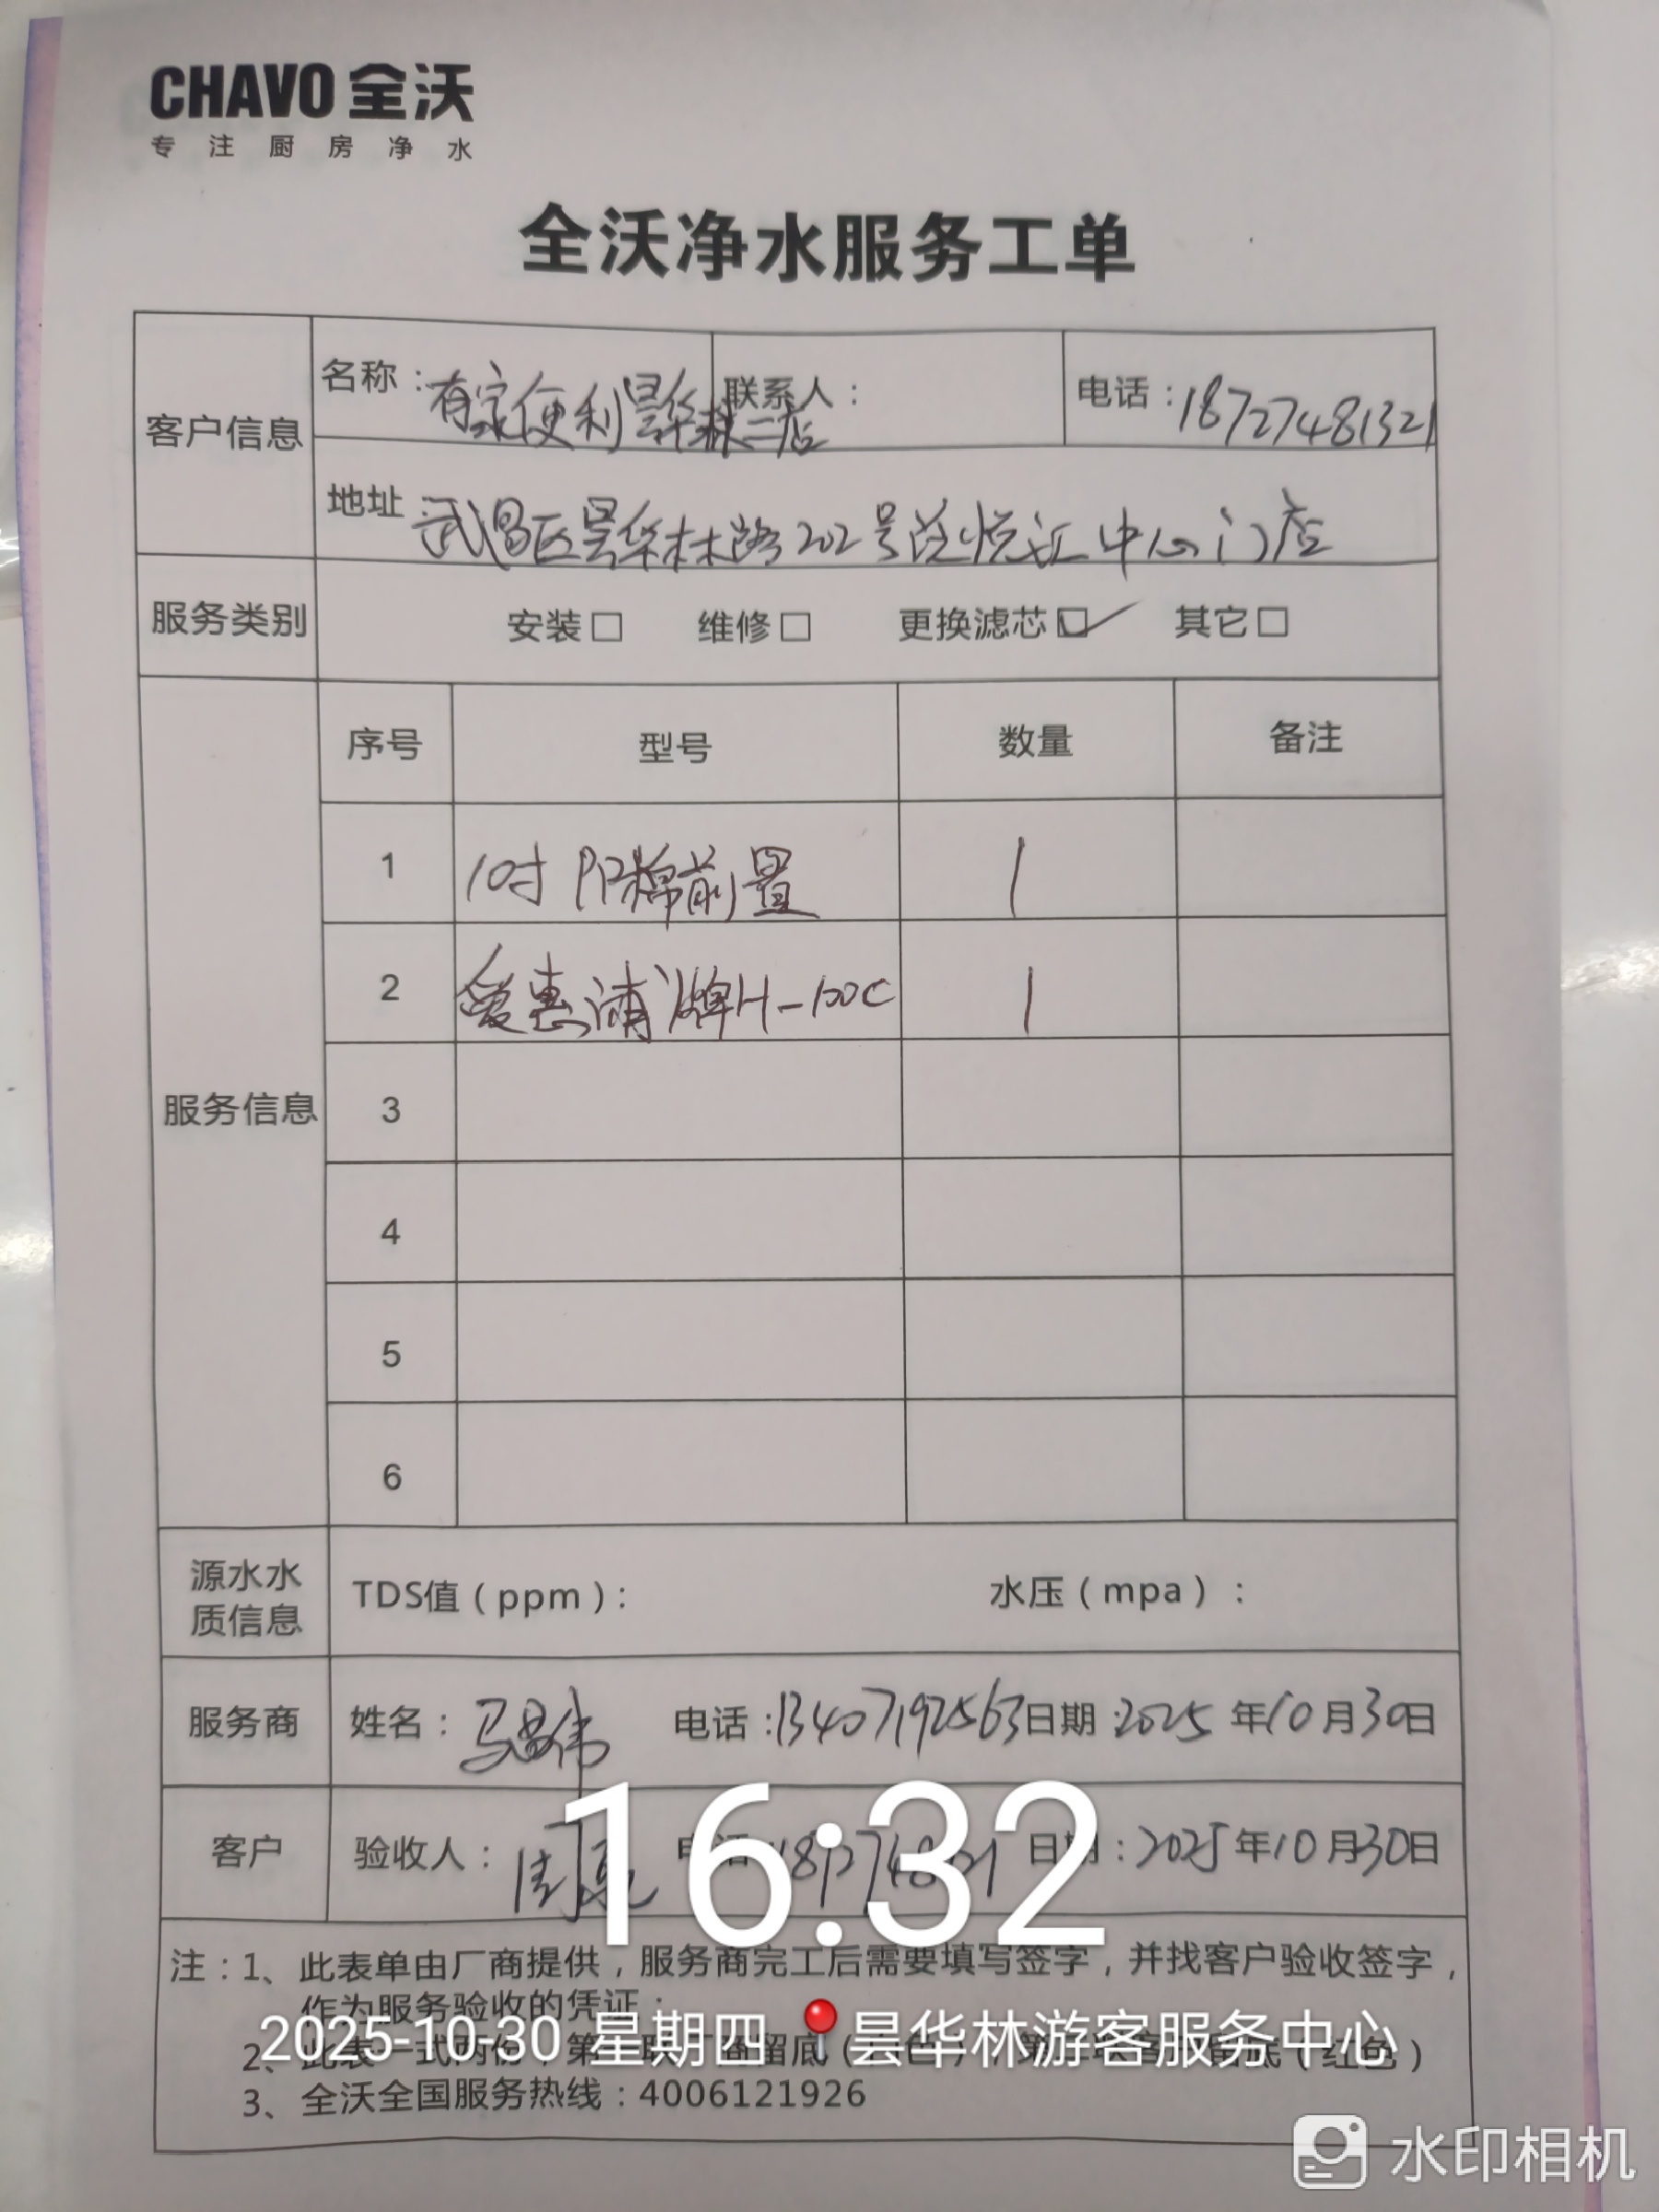 CHAVO 全沃
专注厨房净水
全沃净水服务工单
客户信息
名称：有家便利昙华林二店 联系人： 电话：18727481321
地址 武昌区昙华林路202号 悦汇中心门店
服务类别 安装□ 维修□ 更换滤芯☑ 其它□
服务信息
序号 型号 数量 备注
1 10寸PP棉前置 1
2 爱惠浦牌H-100C 1
3
4
5
6
源水水质信息 TDS值（ppm）： 水压（mpa）：
服务商 姓名：马昌伟 电话：13407192563 日期：2025年10月30日
客户 验收人：周 电话：日期：2025年10月30日
16:32
注：1、此表单由厂商提供，服务商完工后需要填写签字，并找客户验收签字，
作为服务验收的凭证；
2025-10-30 星期四 昙华林游客服务中心
2、此表一式两份，第 联 商留底（ 色），第 联客户留底（红色）
3、全沃全国服务热线：4006121926
水印相机